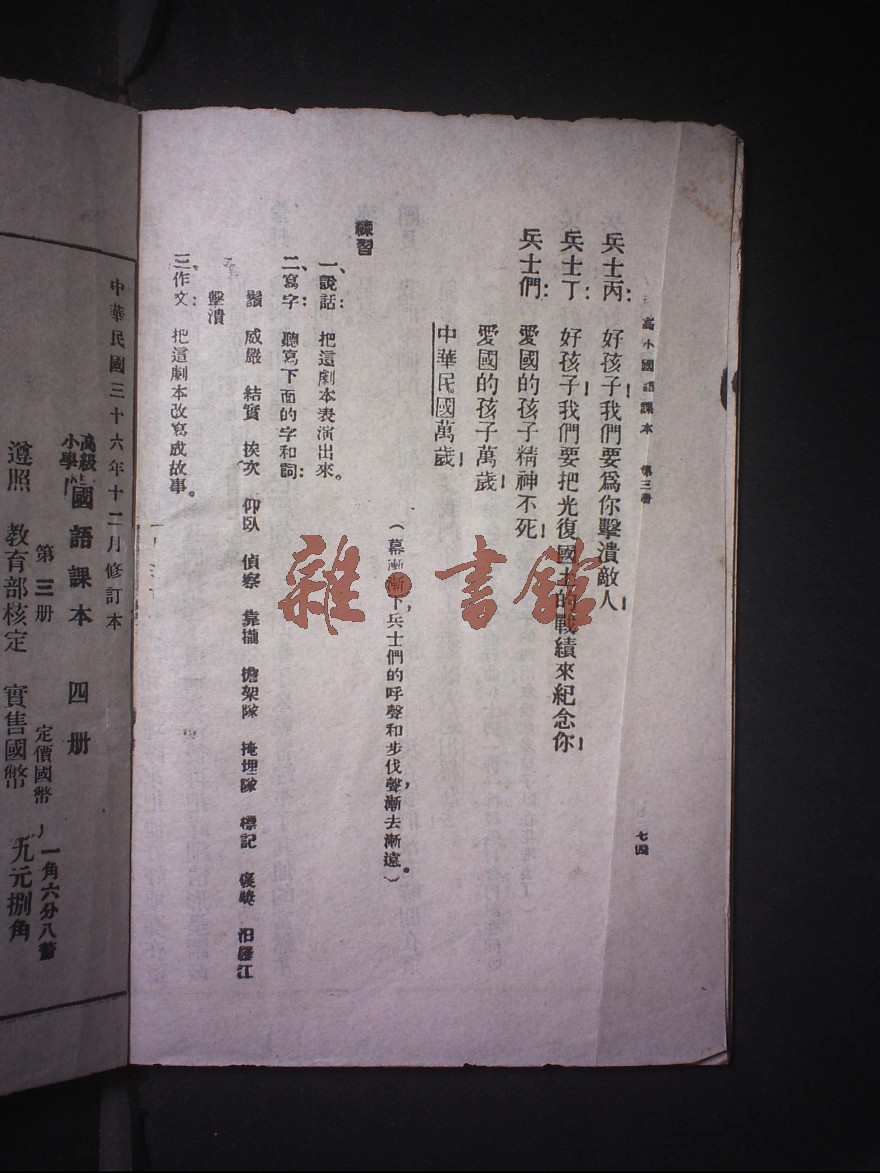 高小國語課本　第三冊
七四
兵士丙：好孩子！我們要爲你擊潰敵人！
兵士丁：好孩子！我們要把光復國土的戰績來紀念你！
兵士們：愛國的孩子精神不死！
愛國的孩子萬歲！
中華民國萬歲！
（幕漸漸下，兵士們的呼聲和步伐聲，漸去漸遠。）
練習
一、說話：把這劇本表演出來。
二、寫字：聽寫下面的字和詞：
鬚　威嚴　結實　挨次　仰臥　偵察　靠攏　擔架隊　掩埋隊　標記　汨羅江
擊潰
三、作文：把這劇本改寫成故事。
中華民國三十六年十二月修訂本
高級小學國語課本　四册
第三册　定價國幣　一角六分八
遵照　教育部核定　實售國幣　九元捌角
雜·書館